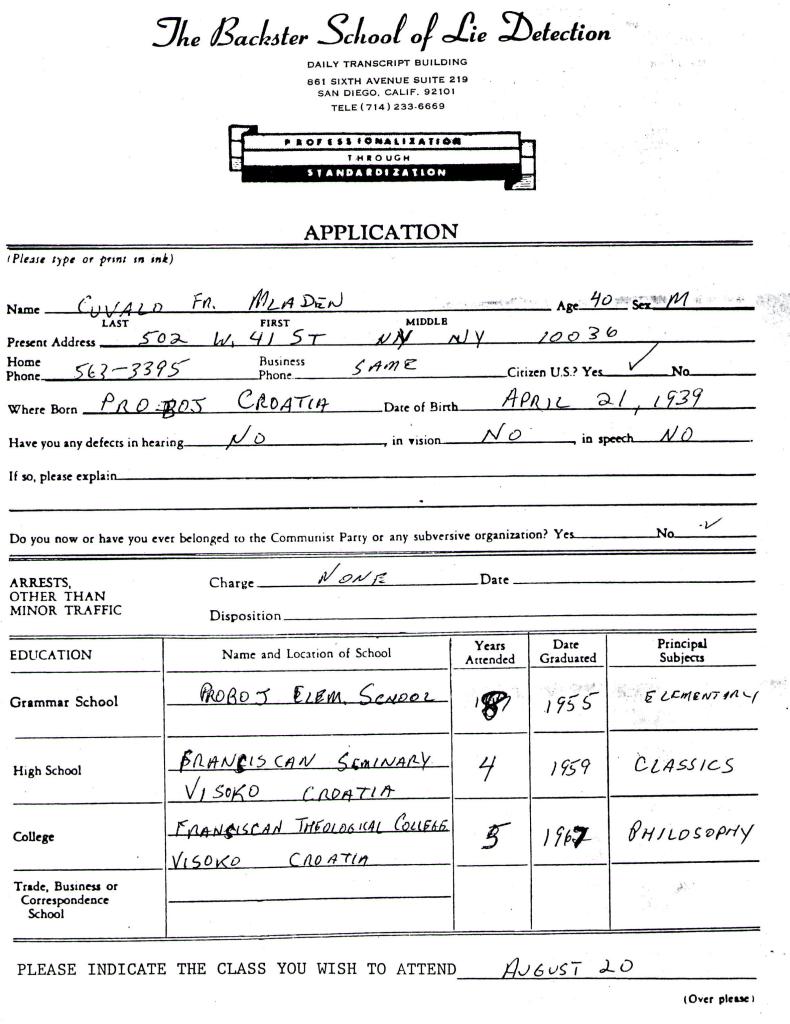 The Backster School of Lie Detection
DAILY TRANSCRIPT BUILDING
861 SIXTH AVENUE SUITE 219
SAN DIEGO, CALIF. 92101
TELE (714) 233-6669
PROFESSIONALIZATION
THROUGH
STANDARDIZATION
APPLICATION
(Please type or print in ink)
Name CUVALO FR. MLADEN Age 40 Sex M
LAST FIRST MIDDLE
Present Address 502 W. 41 ST NY NY 10036
Home Phone 563-3395 Business Phone SAME Citizen U.S.? Yes ✓ No
Where Born PROBOJ CROATIA Date of Birth APRIL 21, 1939
Have you any defects in hearing NO, in vision NO, in speech NO.
If so, please explain
Do you now or have you ever belonged to the Communist Party or any subversive organization? Yes No ✓
ARRESTS, OTHER THAN MINOR TRAFFIC
Charge NONE Date
Disposition
EDUCATION Name and Location of School Years Attended Date Graduated Principal Subjects
Grammar School PROBOJ ELEM. SCHOOL 8 1955 ELEMENTARY
High School FRANCISCAN SEMINARY 4 1959 CLASSICS
VISOKO CROATIA
College FRANCISCAN THEOLOGICAL COLLEGE 5 1967 PHILOSOPHY
VISOKO CROATIA
Trade, Business or
Correspondence
School
PLEASE INDICATE THE CLASS YOU WISH TO ATTEND AUGUST 20
(Over please)